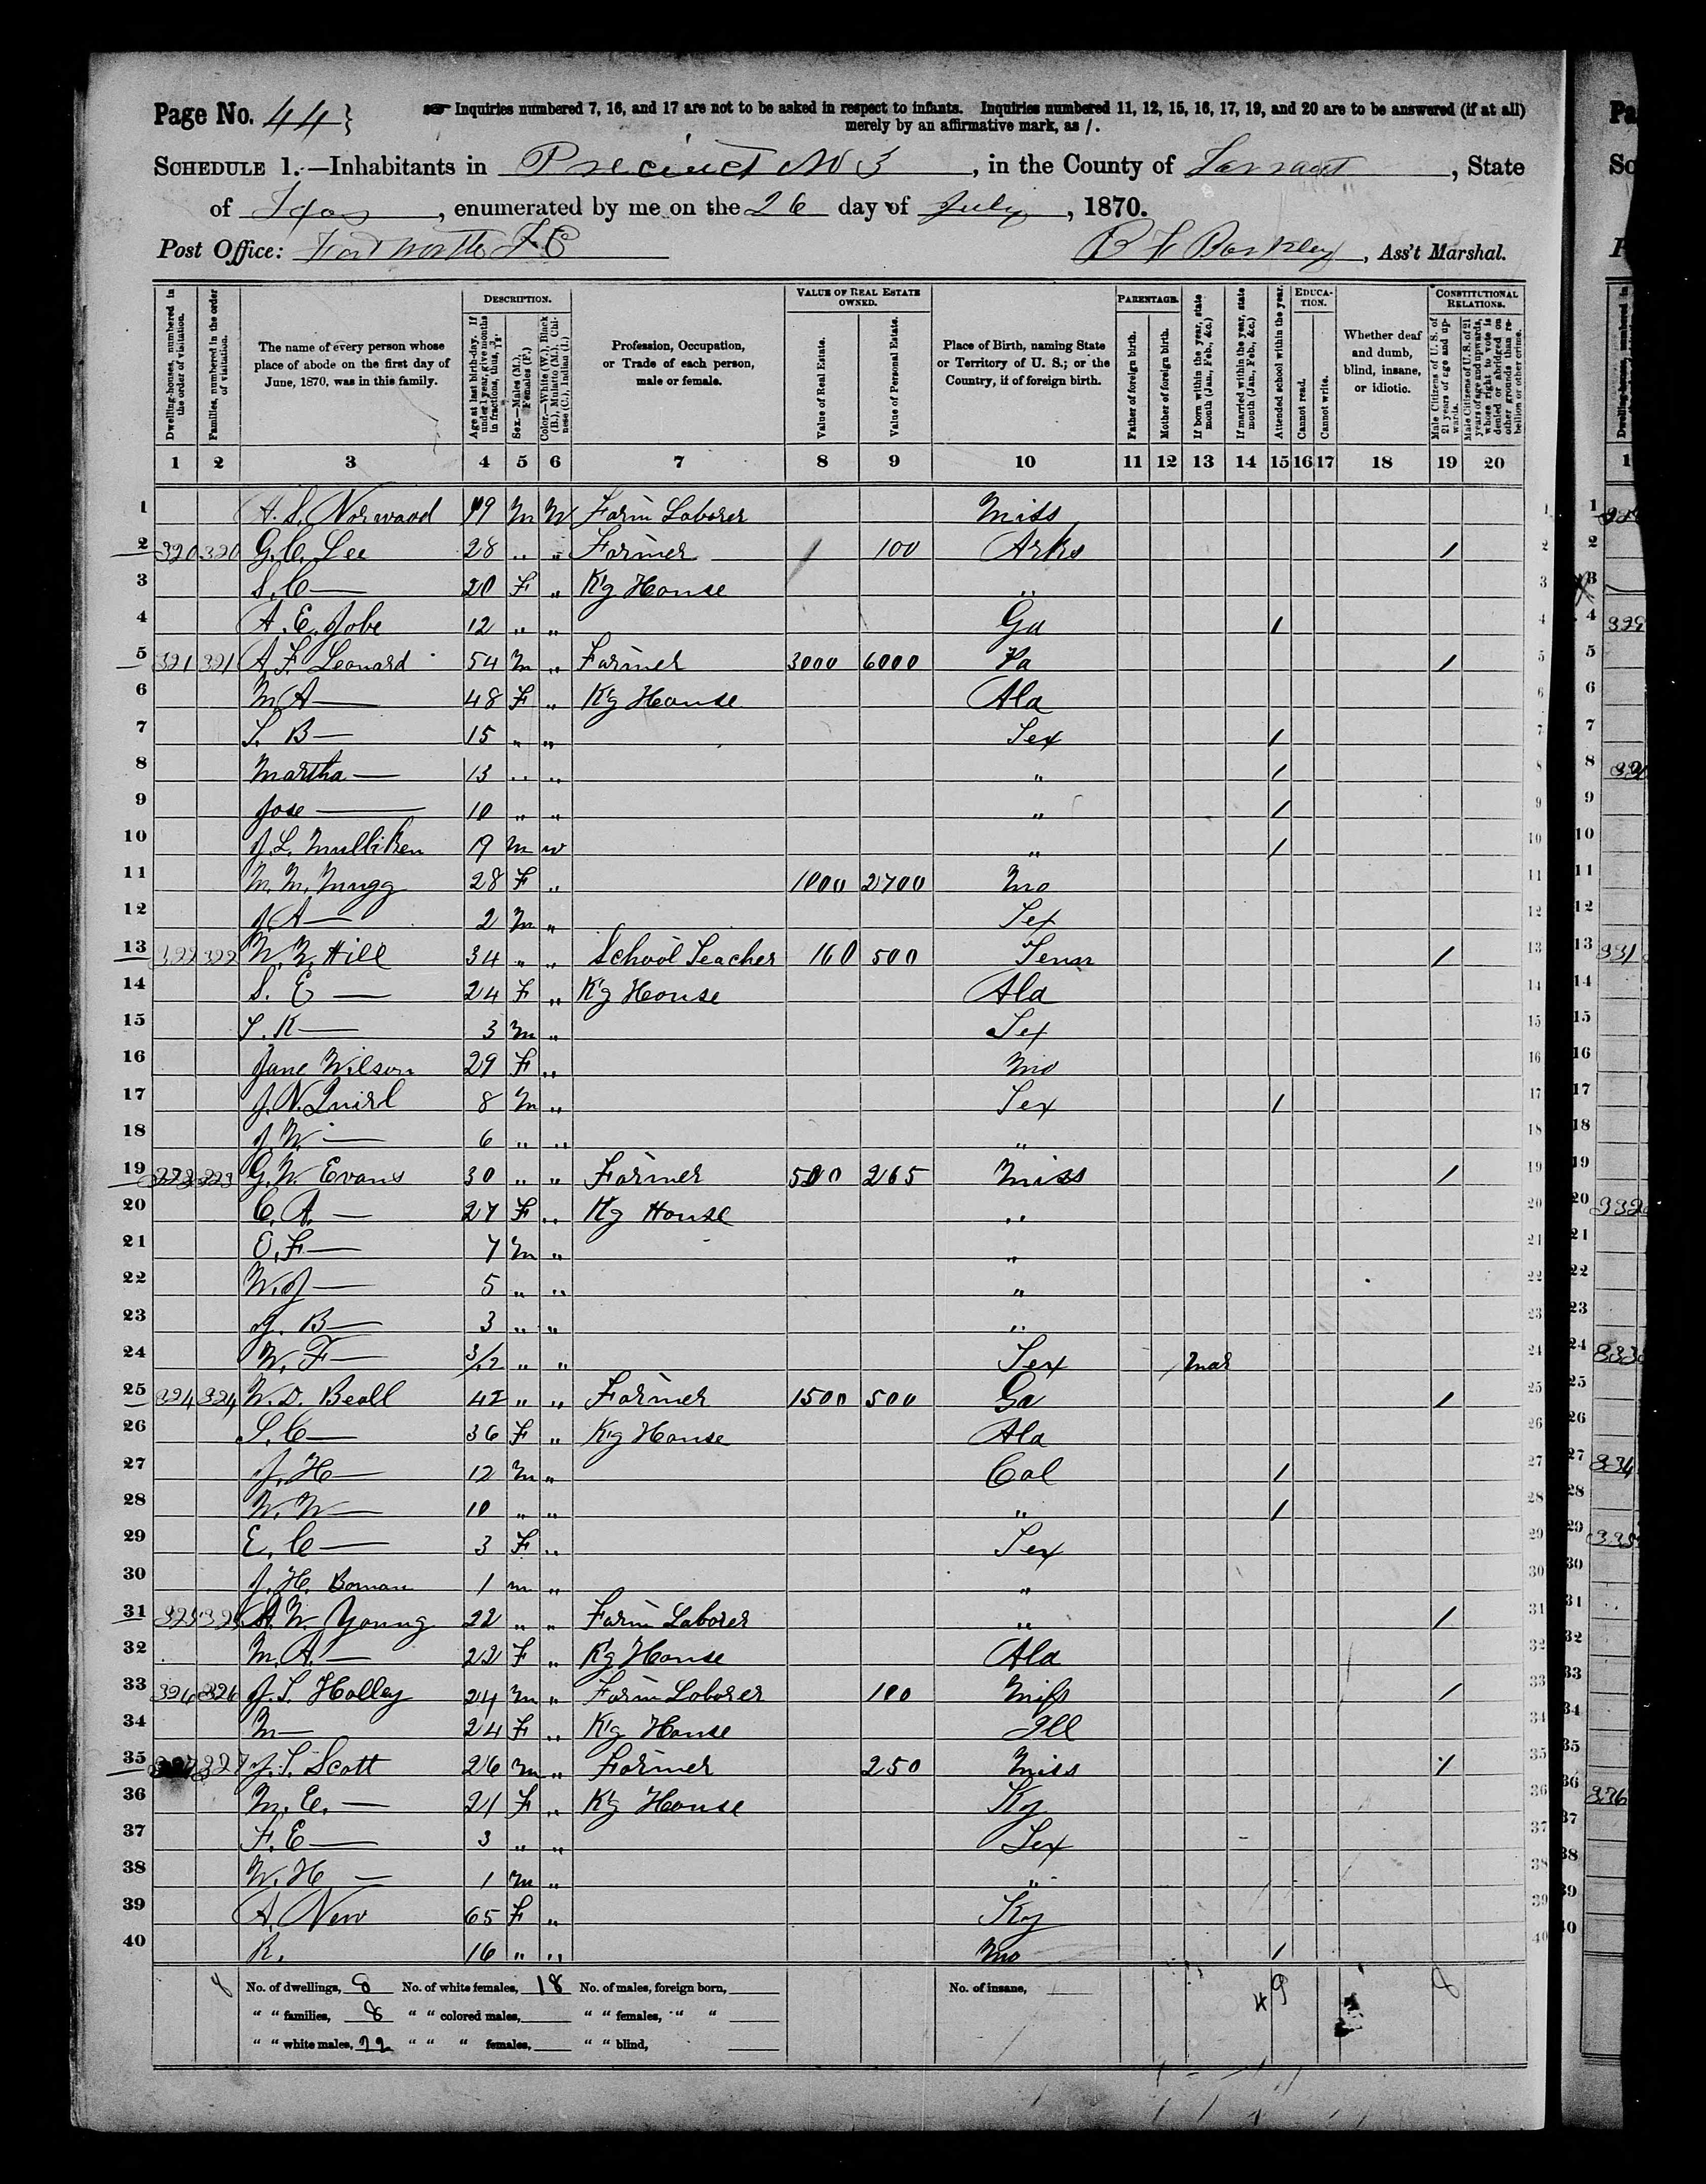 Page No. 44
Inquiries numbered 7, 16, and 17 are not to be asked in respect to infants. Inquiries numbered 11, 12, 15, 16, 17, 19, and 20 are to be answered (if at all)
merely by an affirmative mark, as /.
SCHEDULE 1.—Inhabitants in Precinct No 3, in the County of Tarrant, State
of Texas, enumerated by me on the 26 day of July, 1870.
Post Office: Fort Worth Ass't Marshal.
DESCRIPTION. VALUE OF REAL ESTATE OWNED. PARENTAGE. EDUCATION. CONSTITUTIONAL RELATIONS.
Dwelling-houses, numbered in the order of visitation.
Families, numbered in the order of visitation.
The name of every person whose place of abode on the first day of June, 1870, was in this family.
Age at last birth-day. If under 1 year, give months in fractions, thus, 3/12.
Sex.—Males (M.), Females (F.)
Color.—White (W.), Black (B.), Mulatto (M.), Chinese (C.), Indian (I.)
Profession, Occupation, or Trade of each person, male or female.
Value of Real Estate.
Value of Personal Estate.
Place of Birth, naming State or Territory of U. S.; or the Country, if of foreign birth.
Father of foreign birth.
Mother of foreign birth.
If born within the year, state month (Jan., Feb., &c.)
If married within the year, state month (Jan., Feb., &c.)
Attended school within the year.
Cannot read.
Cannot write.
Whether deaf and dumb, blind, insane, or idiotic.
Male Citizens of U. S. of 21 years of age and upwards.
Male Citizens of U. S. of 21 years of age and upwards, whose right to vote is denied or abridged on other grounds than rebellion or other crime.
1 2 3 4 5 6 7 8 9 10 11 12 13 14 15 16 17 18 19 20
1 A. S. Norwood 19 M W Farm Laborer Miss
2 320 320 G. C. Lee 28 " " Farmer 100 Arks /
3 S. C — 20 F " K'g House "
4 A. E. Jobe 12 " " Ga /
5 321 321 A. F. Leonard 54 M " Farmer 3000 6000 Pa /
6 M A — 48 F " K'g House Ala
7 T. B — 15 " " Tex /
8 Martha — 13 " " " /
9 Jose — 10 " " " /
10 J. L. Mulliken 19 M W " /
11 M. M. Mugg 28 F " 1000 2700 Mo
12 J. A — 2 M " Tex
13 322 322 N. N. Hill 34 " " School Teacher 160 500 Tenn /
14 S. E — 24 F " K'g House Ala
15 T. K — 3 M " Tex
16 Jane Wilson 29 F " Mo
17 J. N. Quirl 8 M " Tex /
18 J. W. — 6 " " "
19 323 323 G. W. Evans 30 " " Farmer 500 265 Miss /
20 C. A. — 27 F " K'g House "
21 O. F — 7 M " "
22 W. J — 5 " " "
23 J. B — 3 " " "
24 W. F — 3/12 " " Tex Mar
25 324 324 W. D. Beall 42 " " Farmer 1500 500 Ga /
26 S. C — 36 F " K'g House Ala
27 J. H — 12 M " Cal /
28 W. W — 10 " " " /
29 E. C — 3 F " Tex
30 J. H. Boman 1 M " "
31 325 325 A. W. Young 22 " " Farm Laborer " /
32 M. A. — 22 F " K'g House Ala
33 326 326 J. T. Holley 24 M " Farm Laborer 100 Miss /
34 M — 24 F " K'g House Ill
35 327 327 J. T. Scott 26 M " Farmer 250 Miss /
36 M. E. — 21 F " K'g House Ky
37 F. E — 3 " " Tex
38 W. H — 1 M " "
39 A. New 65 F " Ky
40 R. 16 " " Mo /
8 No. of dwellings, 8 No. of white females, 18 No. of males, foreign born, No. of insane, 9 8
" " families, 8 " " colored males, " " females, " "
" " white males, 22 " " " females, " " blind,